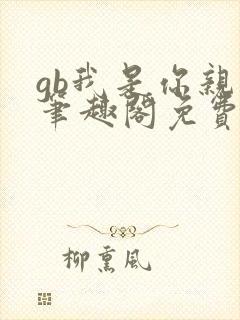 gb我是你親
筆趣閣免費
柳熏風